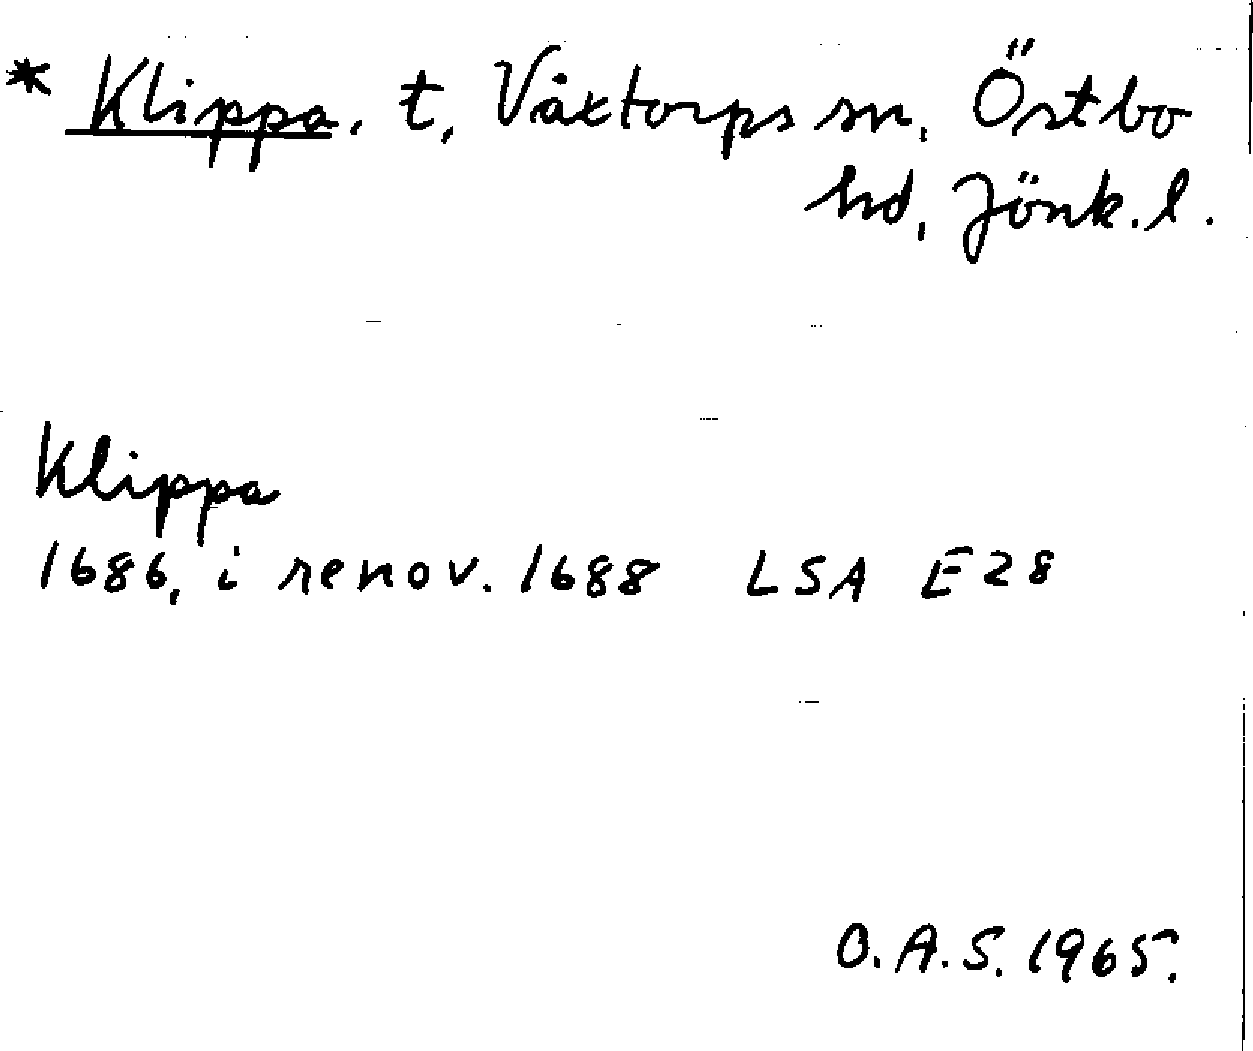 * Klippa, t, Våxtorps sn, Östbo
hd, Jönk. l.
Klippa
1686, i renov. 1688 LSA E28
O.A.S. 1965.